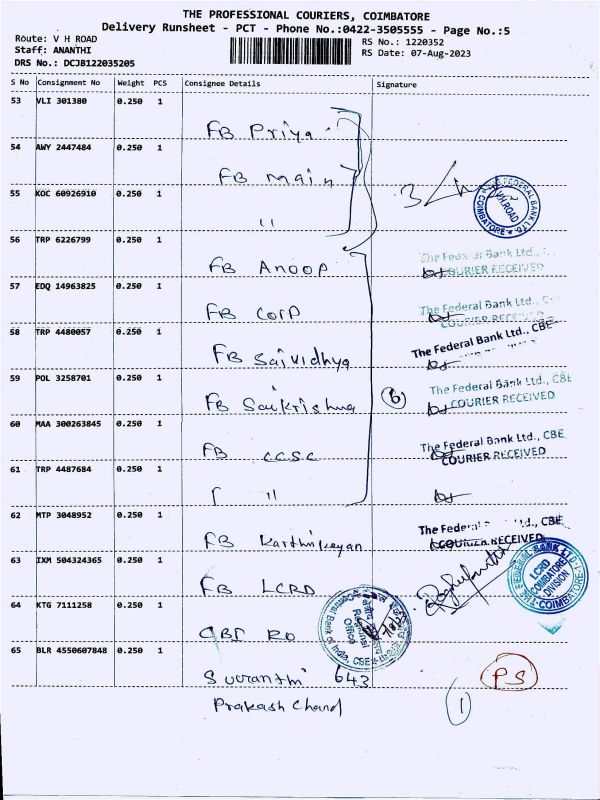 THE PROFESSIONAL COURIERS, COIMBATORE
Delivery Runsheet - PCT - Phone No.:0422-3505555 - Page No.:5
Route: V H ROAD
Staff: ANANTHI
DRS No.: DCJB122035205
RS No.: 1220352
RS Date: 07-Aug-2023
S No Consignment No Weight PCS Consignee Details Signature
53 VLI 301380 0.250 1
FB Priya
54 AWY 2447484 0.250 1
FB Main
3
THE FEDERAL BANK LTD V.H.ROAD COIMBATORE
55 KOC 60926910 0.250 1
"
56 TRP 6226799 0.250 1
FB Anoop
The Federal Bank Ltd.,
COURIER RECEIVED
57 EDQ 14963825 0.250 1
FB Corp
The Federal Bank Ltd., CB
COURIER RECEIVED
58 TRP 4480057 0.250 1
FB Saividhya
The Federal Bank Ltd., CBE
59 POL 3258701 0.250 1
FB Saikrishna
6
The Federal Bank Ltd., CBE
COURIER RECEIVED
60 MAA 300263845 0.250 1
FB CCSC
The Federal Bank Ltd., CBE
COURIER RECEIVED
61 TRP 4487684 0.250 1
"
62 MTP 3048952 0.250 1
FB Karthikeyan
The Federal Ltd., CBE
COURIER RECEIVED
63 IXM 504324365 0.250 1
FB LCRD
THE FEDERAL BANK LTD LCRD COIMBATORE DIVISION COIMBATORE
64 KTG 7111258 0.250 1
CBI RO
Central Bank of India, CBE Regional Office
65 BLR 4550607848 0.250 1
643
PS
Prakash Chand
1